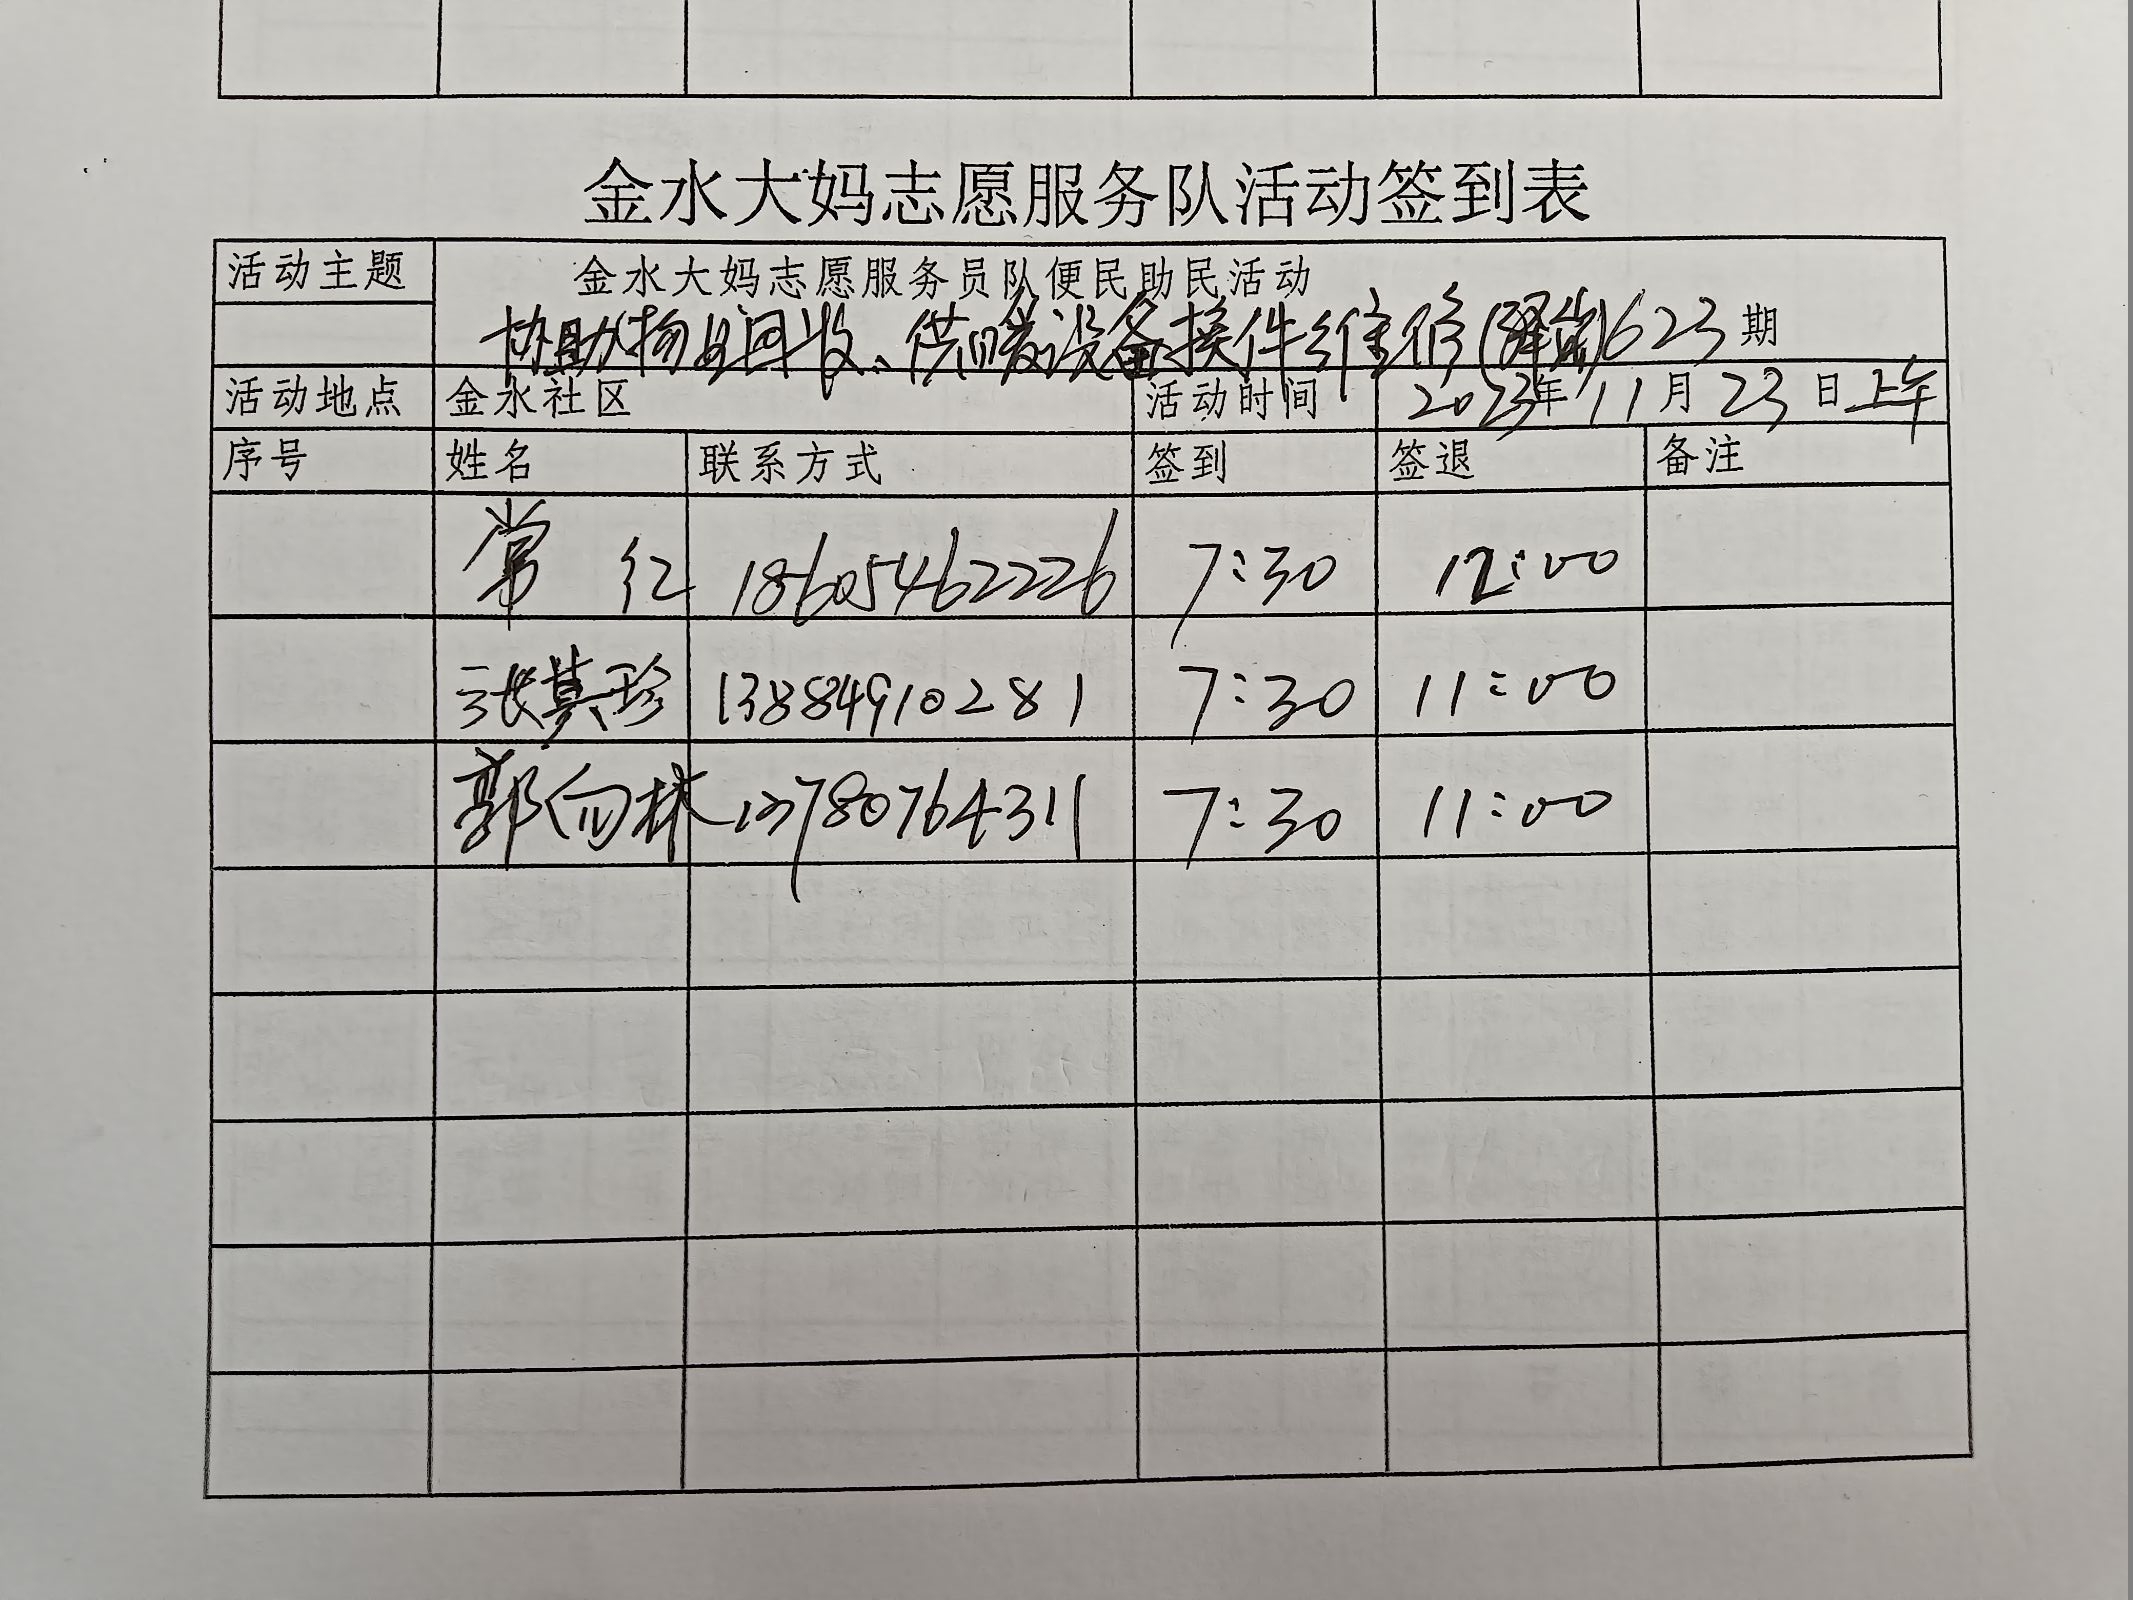 金水大妈志愿服务队活动签到表
活动主题 金水大妈志愿服务员队便民助民活动
协助物业回收、供暖设备换件维修 623期
活动地点 金水社区 活动时间 2023年11月23日上午
序号 姓名 联系方式 签到 签退 备注
常红 18605462226 7:30 12:00
张其珍 13884910281 7:30 11:00
郭向林 13780764311 7:30 11:00